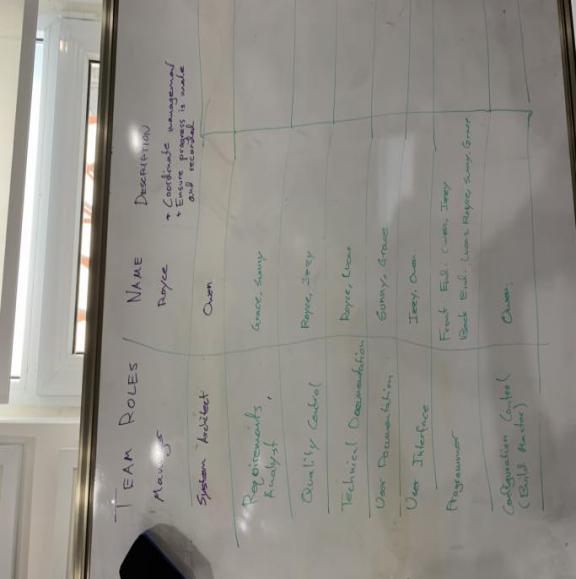 TEAM ROLES NAME DESCRIPTION
Manager Royce + Coordinate management
+ Ensure progress is made
and recorded
System Architect Owen
Requirements Grace, Sunny
Analyst
Quality Control Royce, Izzy
Technical Documentation Royce,
User Documentation Sunny, Grace
User Interface Izzy, Owen
Programmer Front End: Owen, Izzy
Back End: Royce, Sunny, Grace
Configuration Control Owen
(Build Master)